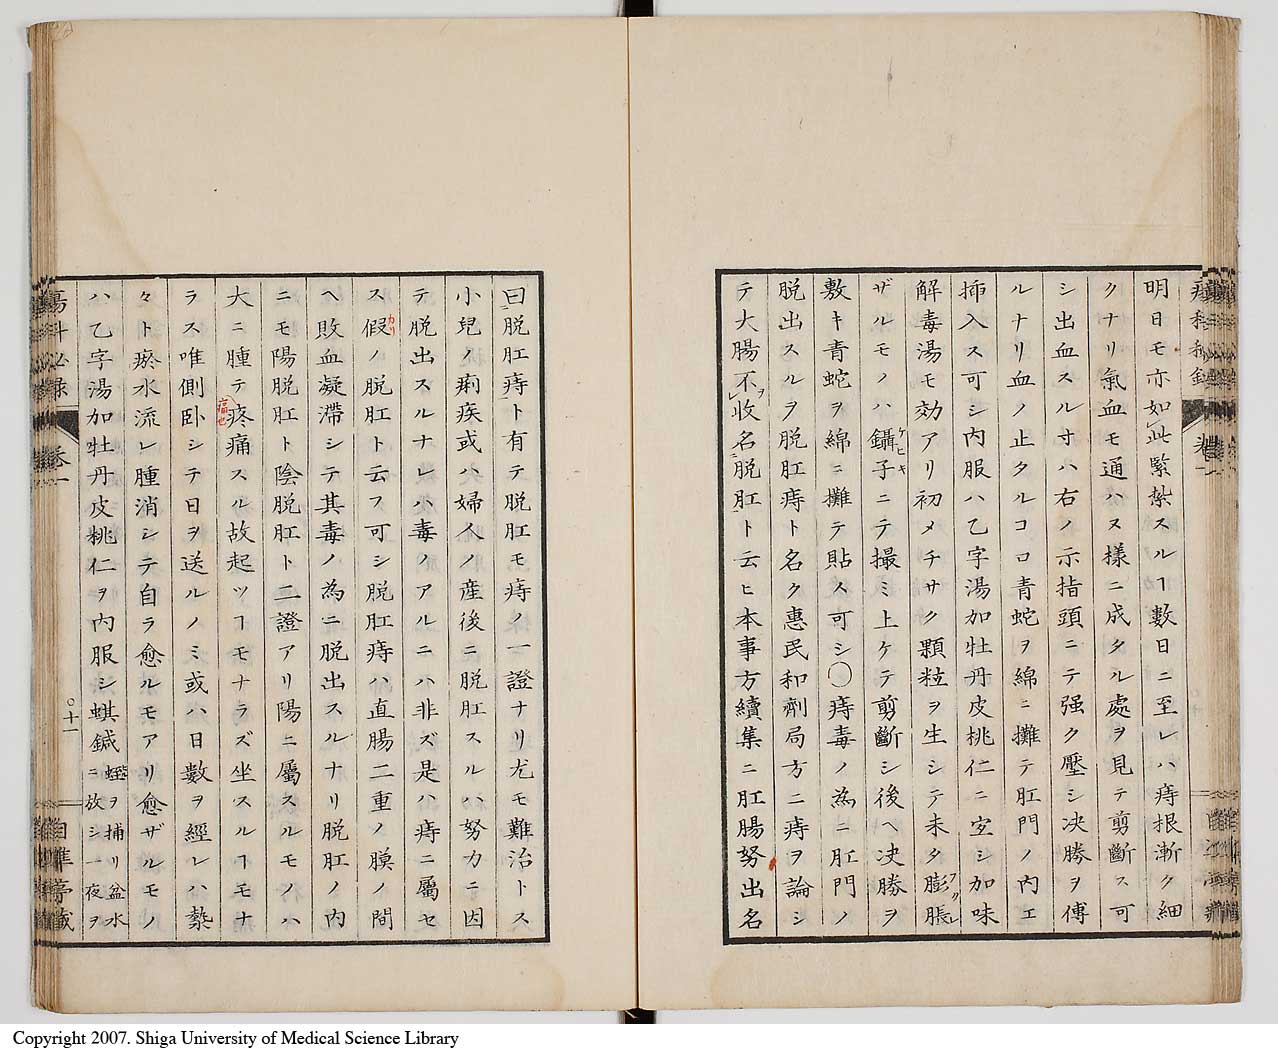 明日モ亦如此緊紮スルヿ數日ニ至レハ痔根漸ク細
クナリ氣血モ通ハヌ樣ニ成タル處ヲ見テ剪斷ス可
シ出血スル寸ハ右ノ示指頭ニテ强ク壓シ决勝ヲ傅
ルナリ血ノ止タルコロ青蛇ヲ綿ニ攤テ肛門ノ內エ
揷入ス可シ內服ハ乙字湯加牡丹皮桃仁ニ宜シ加味
解毒湯モ効アリ初メチサク顆粒ヲ生シテ未タ膨脹
フクレ
ザルモノハ鑷子ニテ撮ミ上ケテ剪斷シ後ヘ决勝ヲ
ケヒキ
敷キ青蛇ヲ綿ニ攤テ貼ス可シ〇痔毒ノ為ニ肛門ノ
脱出スルヲ脱肛痔ト名ク惠民和劑局方ニ痔ヲ論シ
テ大腸不ヲレ收名ニ脱肛一ト云ヒ本事方續集ニ肛腸努出名
曰脱肛痔ト有テ脱肛モ痔ノ一證ナリ尤モ難治トス
小兒ノ痢疾或ハ婦人ノ産後ニ脱肛スルハ努力ニ因
テ脱出スルナレハ毒ノアルニハ非ズ是ハ痔ニ屬セ
ス假ノ脱肛ト云フ可シ脱肛痔ハ直腸二重ノ膜ノ間
カリ
ヘ敗血凝滯シテ其毒ノ為ニ脱出スルナリ脱肛ノ內
ニモ陽脱肛ト陰脱肛ト二證アリ陽ニ屬スルモノハ
大ニ腫テ疼痛スル故起ツヿモナラズ坐スルヿモナ
ラス唯側卧シテ日ヲ送ルノミ或ハ日數ヲ經レハ漐
々ト瘀水流レ腫消シテ自ラ愈ルモアリ愈ザルモノ
ハ乙字湯加牡丹皮桃仁ヲ內服シ蜞鍼蛭ヲ捕リ盆水ニ放シ一夜ヲ
卷一
十一